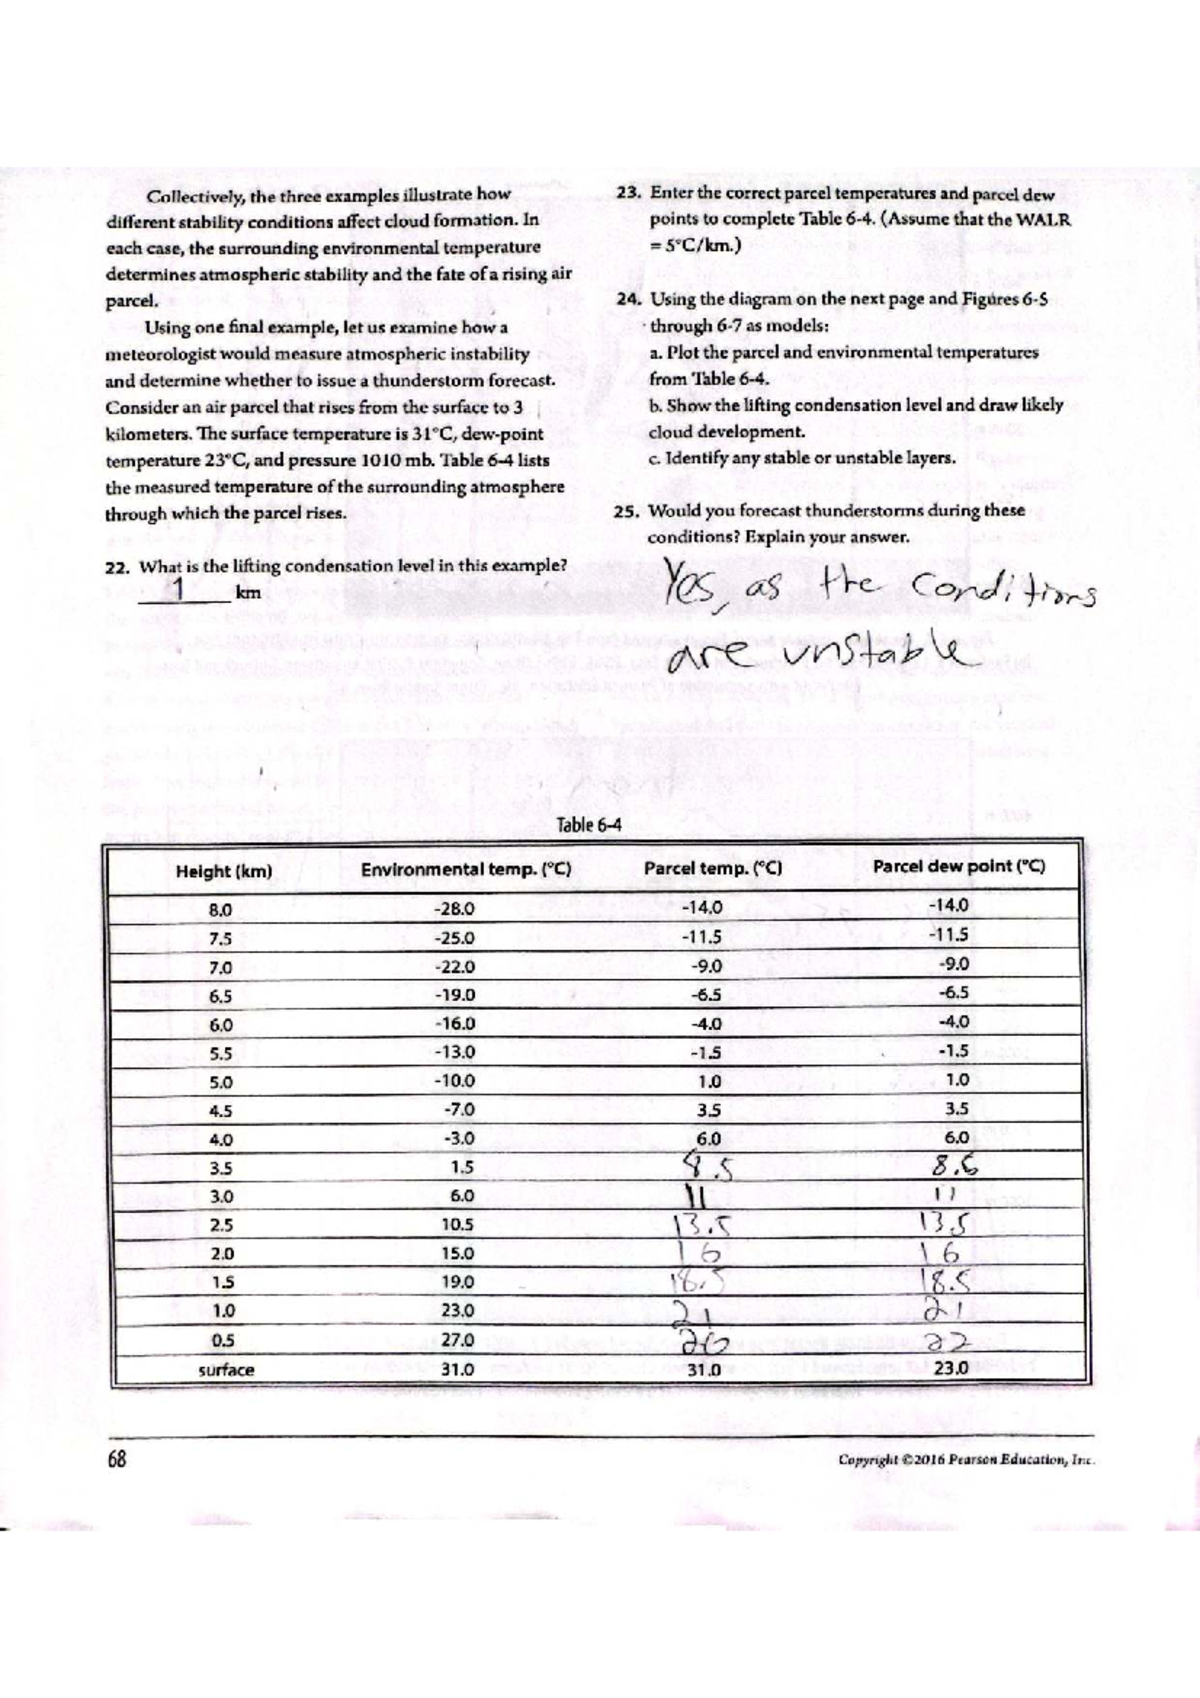 Collectively, the three examples illustrate how
different stability conditions affect cloud formation. In
each case, the surrounding environmental temperature
determines atmospheric stability and the fate of a rising air
parcel.
Using one final example, let us examine how a
meteorologist would measure atmospheric instability
and determine whether to issue a thunderstorm forecast.
Consider an air parcel that rises from the surface to 3
kilometers. The surface temperature is 31°C, dew-point
temperature 23°C, and pressure 1010 mb. Table 6-4 lists
the measured temperature of the surrounding atmosphere
through which the parcel rises.
22. What is the lifting condensation level in this example?
1 km
23. Enter the correct parcel temperatures and parcel dew
points to complete Table 6-4. (Assume that the WALR
= 5°C/km.)
24. Using the diagram on the next page and Figures 6-5
through 6-7 as models:
a. Plot the parcel and environmental temperatures
from Table 6-4.
b. Show the lifting condensation level and draw likely
cloud development.
c. Identify any stable or unstable layers.
25. Would you forecast thunderstorms during these
conditions? Explain your answer.
Yes, as the conditions
are unstable
Table 6-4
Height (km) Environmental temp. (°C) Parcel temp. (°C) Parcel dew point (°C)
8.0 -28.0 -14.0 -14.0
7.5 -25.0 -11.5 -11.5
7.0 -22.0 -9.0 -9.0
6.5 -19.0 -6.5 -6.5
6.0 -16.0 -4.0 -4.0
5.5 -13.0 -1.5 -1.5
5.0 -10.0 1.0 1.0
4.5 -7.0 3.5 3.5
4.0 -3.0 6.0 6.0
3.5 1.5 8.5 8.5
3.0 6.0 11 11
2.5 10.5 13.5 13.5
2.0 15.0 16 16
1.5 19.0 18.5 18.5
1.0 23.0 21 21
0.5 27.0 26 22
surface 31.0 31.0 23.0
68
Copyright ©2016 Pearson Education, Inc.